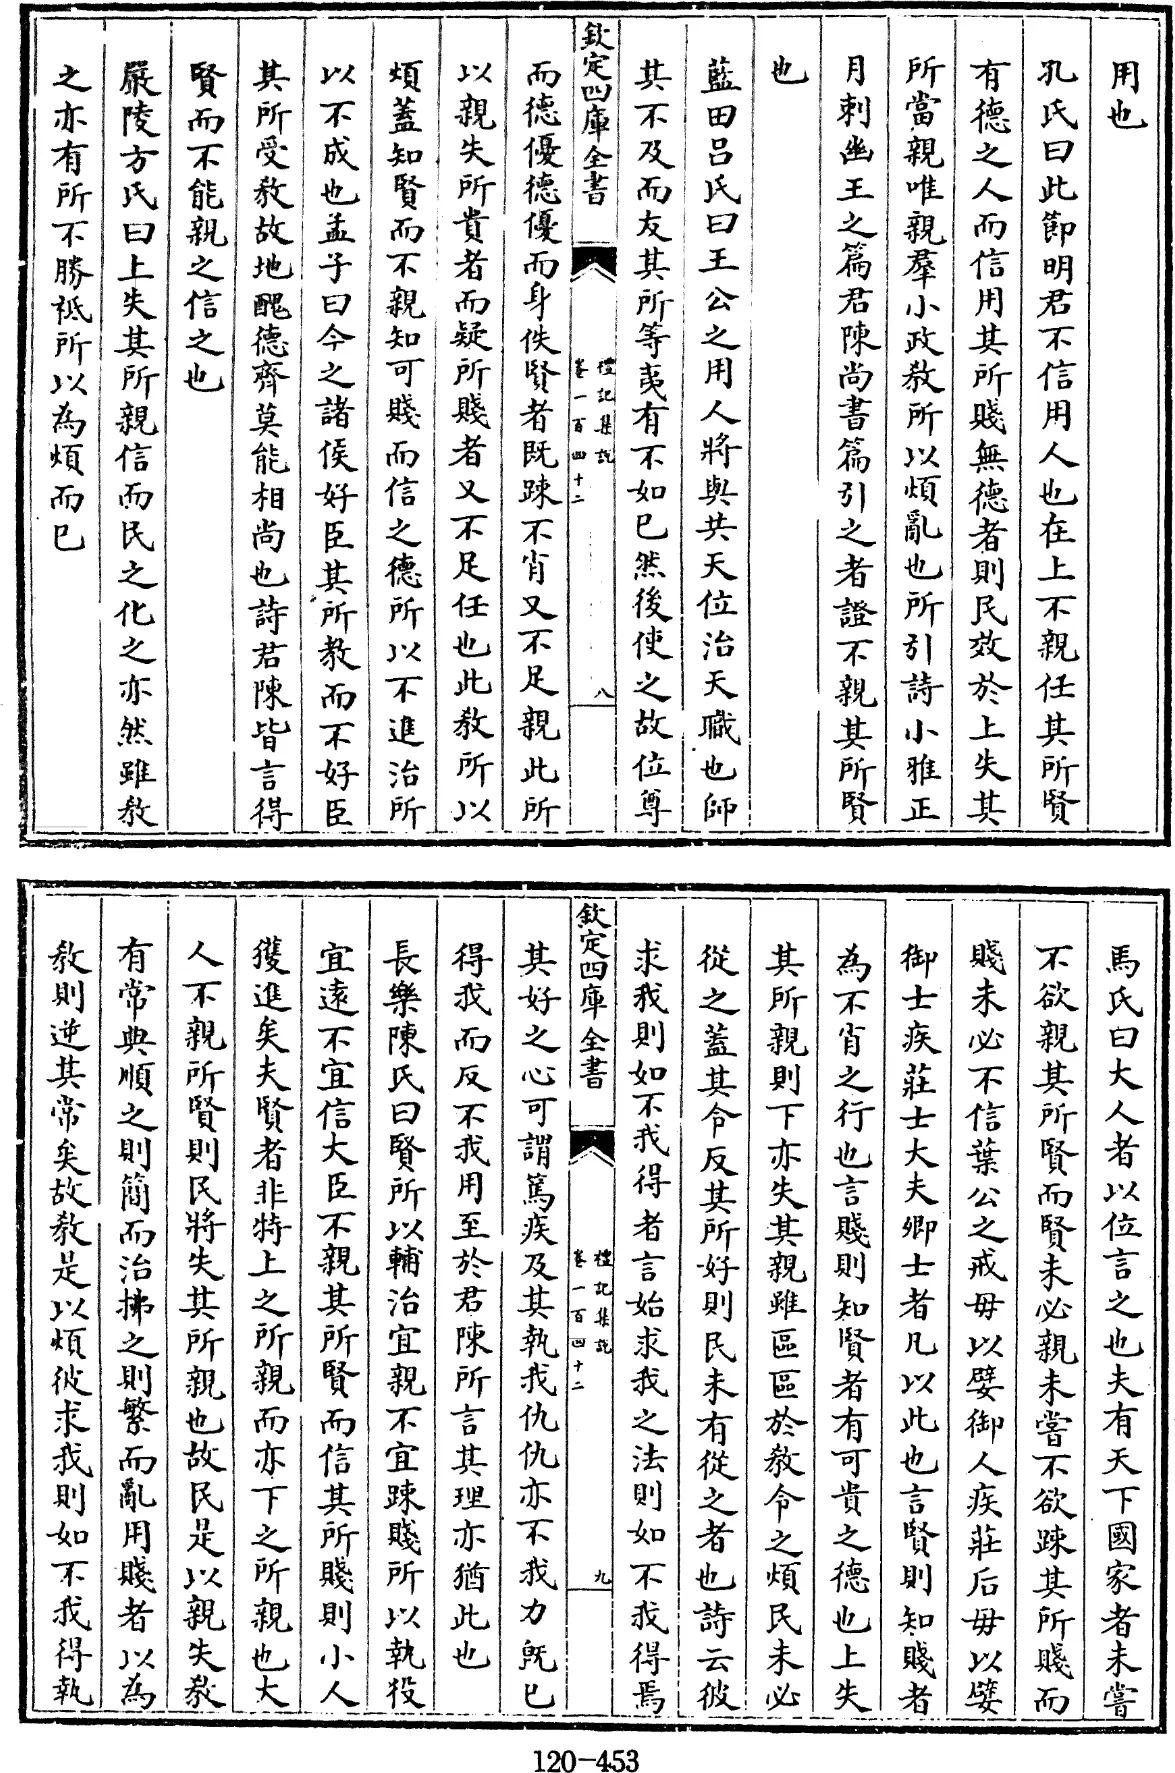 用也
孔氏曰此節明君不信用人也在上不親任其所賢
有德之人而信用其所賤無德者則民效於上失其
所當親唯親羣小政敎所以煩亂也所引詩小雅正
月刺幽王之篇君陳尚書篇引之者證不親其所賢
也
藍田呂氏曰王公之用人將與共天位治天職也師
其不及而友其所等夷有不如已然後使之故位尊
欽定四庫全書
禮記集說
卷一百四十二
八
而德優德優而身佚賢者既踈不肖又不足親此所
以親失所貴者而疑所賤者又不足任也此敎所以
煩蓋知賢而不親知可賤而信之德所以不進治所
以不成也孟子曰今之諸侯好臣其所教而不好臣
其所受敎故地醜德齊莫能相尚也詩君陳皆言得
賢而不能親之信之也
嚴陵方氏曰上失其所親信而民之化之亦然雖敎
之亦有所不勝祗所以為煩而已
馬氏曰大人者以位言之也夫有天下國家者未嘗
不欲親其所賢而賢未必親未嘗不欲踈其所賤而
賤未必不信葉公之戒毋以嬖御人疾莊后毋以嬖
御士疾莊士大夫卿士者凡以此也言賢則知賤者
為不肖之行也言賤則知賢者有可貴之德也上失
其所親則下亦失其親雖區區於敎令之煩民未必
從之蓋其令反其所好則民未有從之者也詩云彼
求我則如不我得者言始求我之法則如不我得焉
欽定四庫全書
禮記集說
卷一百四十二
九
其好之心可謂篤疾及其執我仇仇亦不我力旣已
得我而反不我用至於君陳所言其理亦猶此也
長樂陳氏曰賢所以輔治宜親不宜踈賤所以執役
宜遠不宜信大臣不親其所賢而信其所賤則小人
獲進矣夫賢者非特上之所親而亦下之所親也大
人不親所賢則民將失其所親也故民是以親失敎
有常典順之則簡而治拂之則繁而亂用賤者以為
敎則逆其常矣故敎是以煩彼求我則如不我得執
120-453